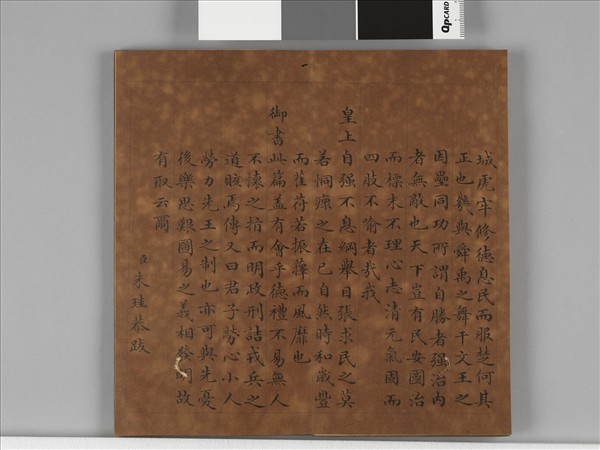 城虎牢修德息民而服楚何其
正也幾與舜禹之舞干文王之
因壘同功所謂自勝者强治内
者無敵也天下豈有民安國治
而標末不理心志清元氣固而
四肢不喻者哉我
皇上自强不息綱舉目張求民之莫
若恫瘝之在己自然時和歲豐
而萑苻若振蘀而風靡也
御書此篇盖有會乎德禮不易無人
不懷之指而明政刑詰戎兵之
道賅焉傳又曰君子勞心小人
勞力先王之制也亦可與先憂
後樂思艱圖易之義相發明故
有取云爾
臣朱珪恭跋
QPCARD